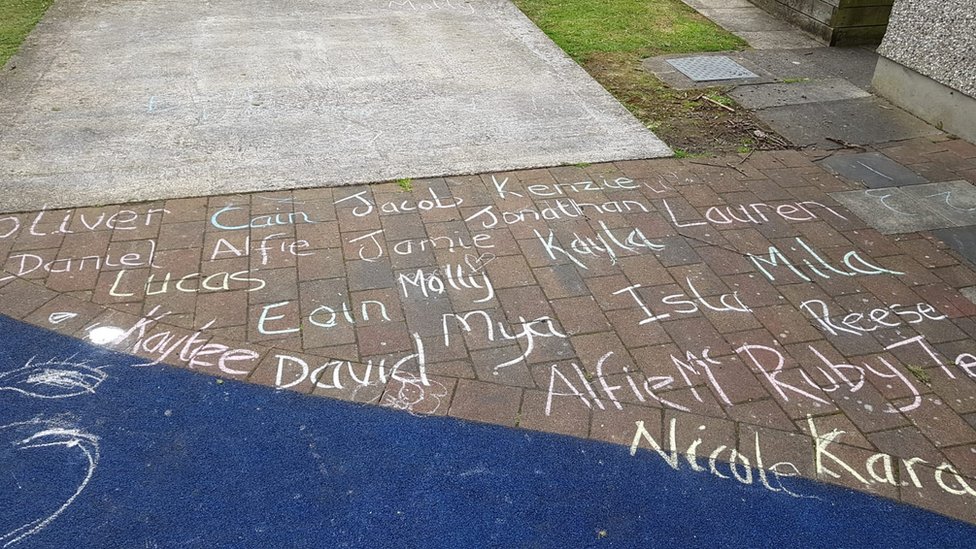 Molly
Oliver Cain Jacob Kenzie
Jonathan Lauren
Daniel Alfie Jamie Kayla Mila
Lucas Molly Isla
Eoin Mya Reese
Kaytee David Alfie Mc Ruby
Nicole Kara